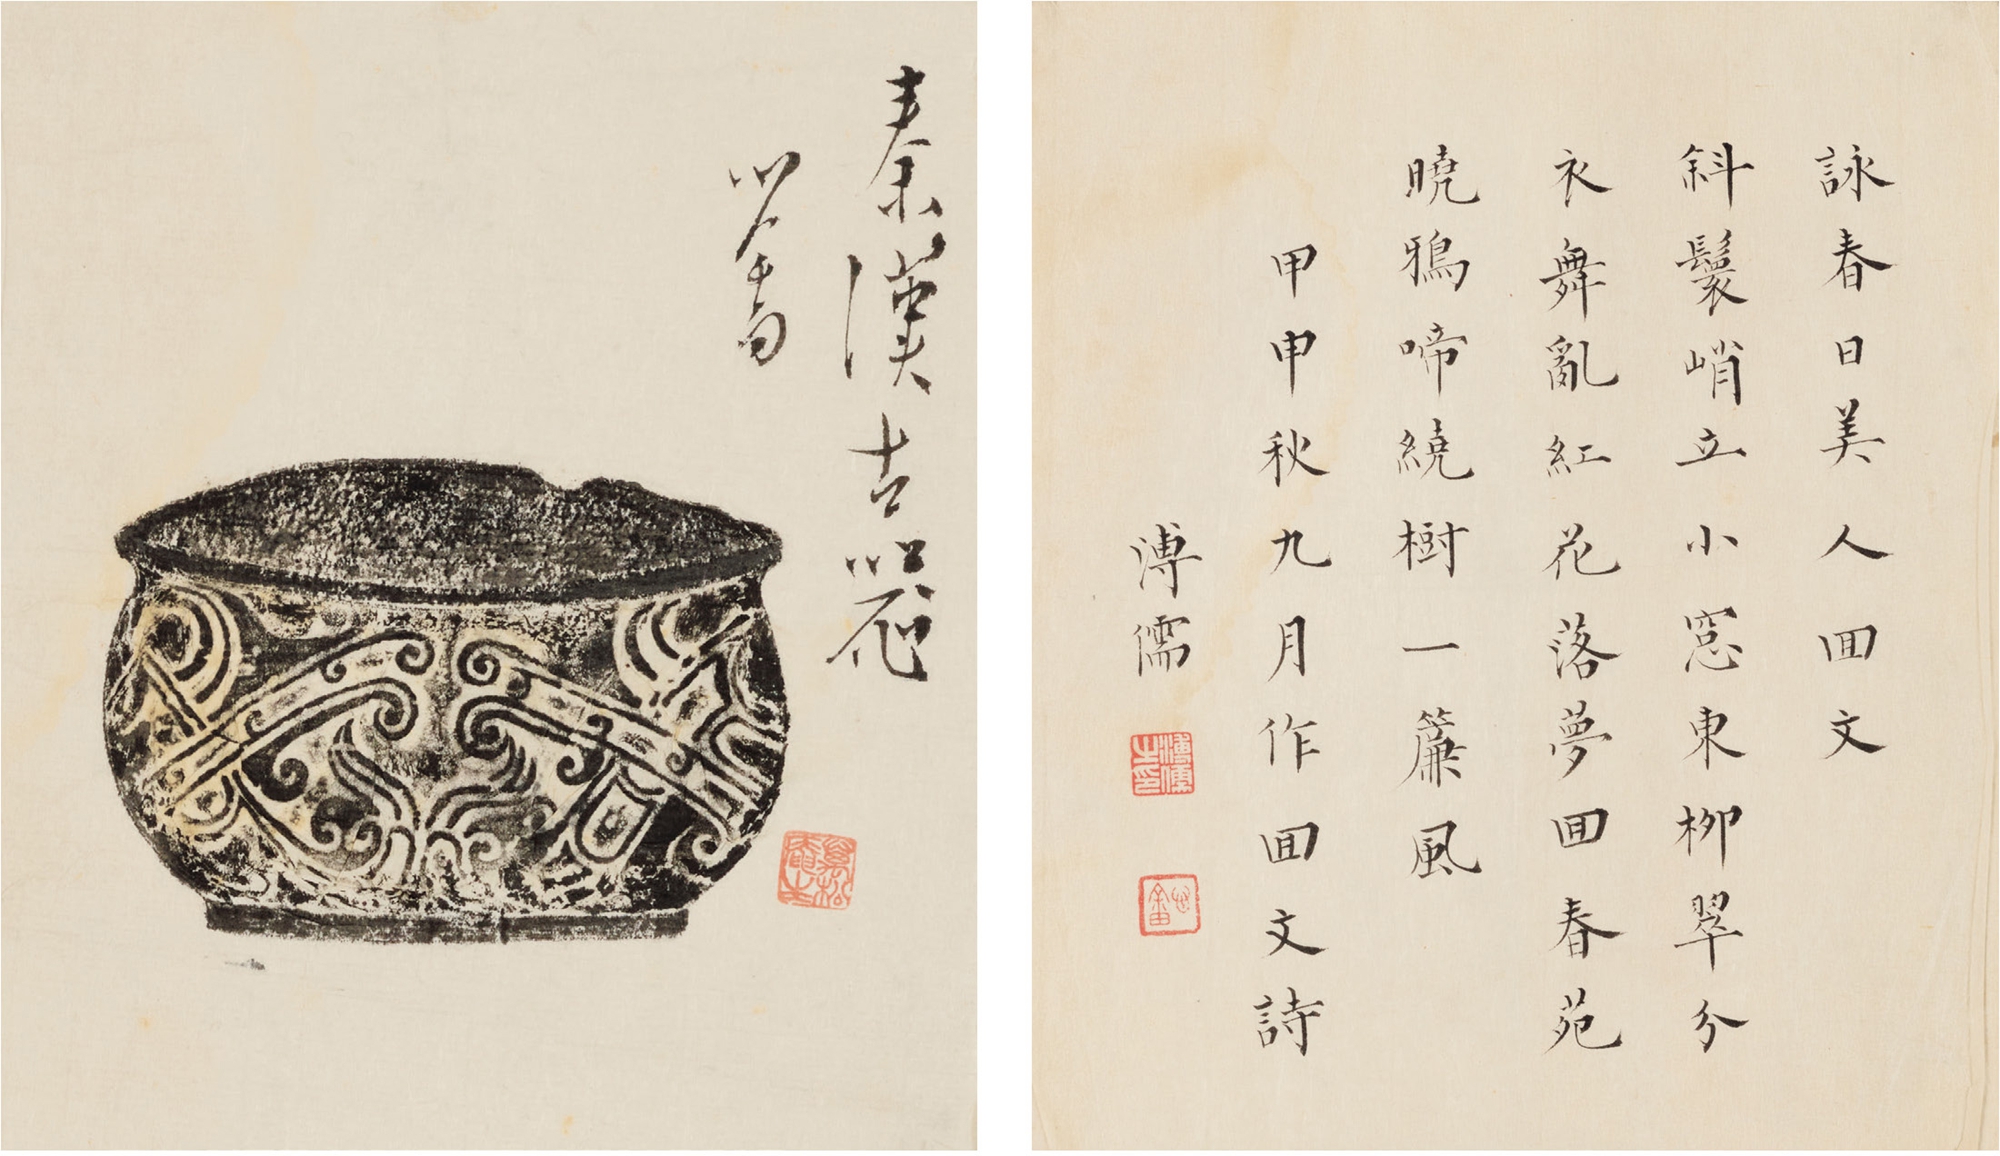 秦漢古器
心畬
詠春日美人囬文
斜鬟峭立小窓東柳翠分
衣舞亂紅花落夢囬春苑
曉鴉啼繞樹一簾風
甲申秋九月作囬文詩
溥儒
溥儒之印
心畬